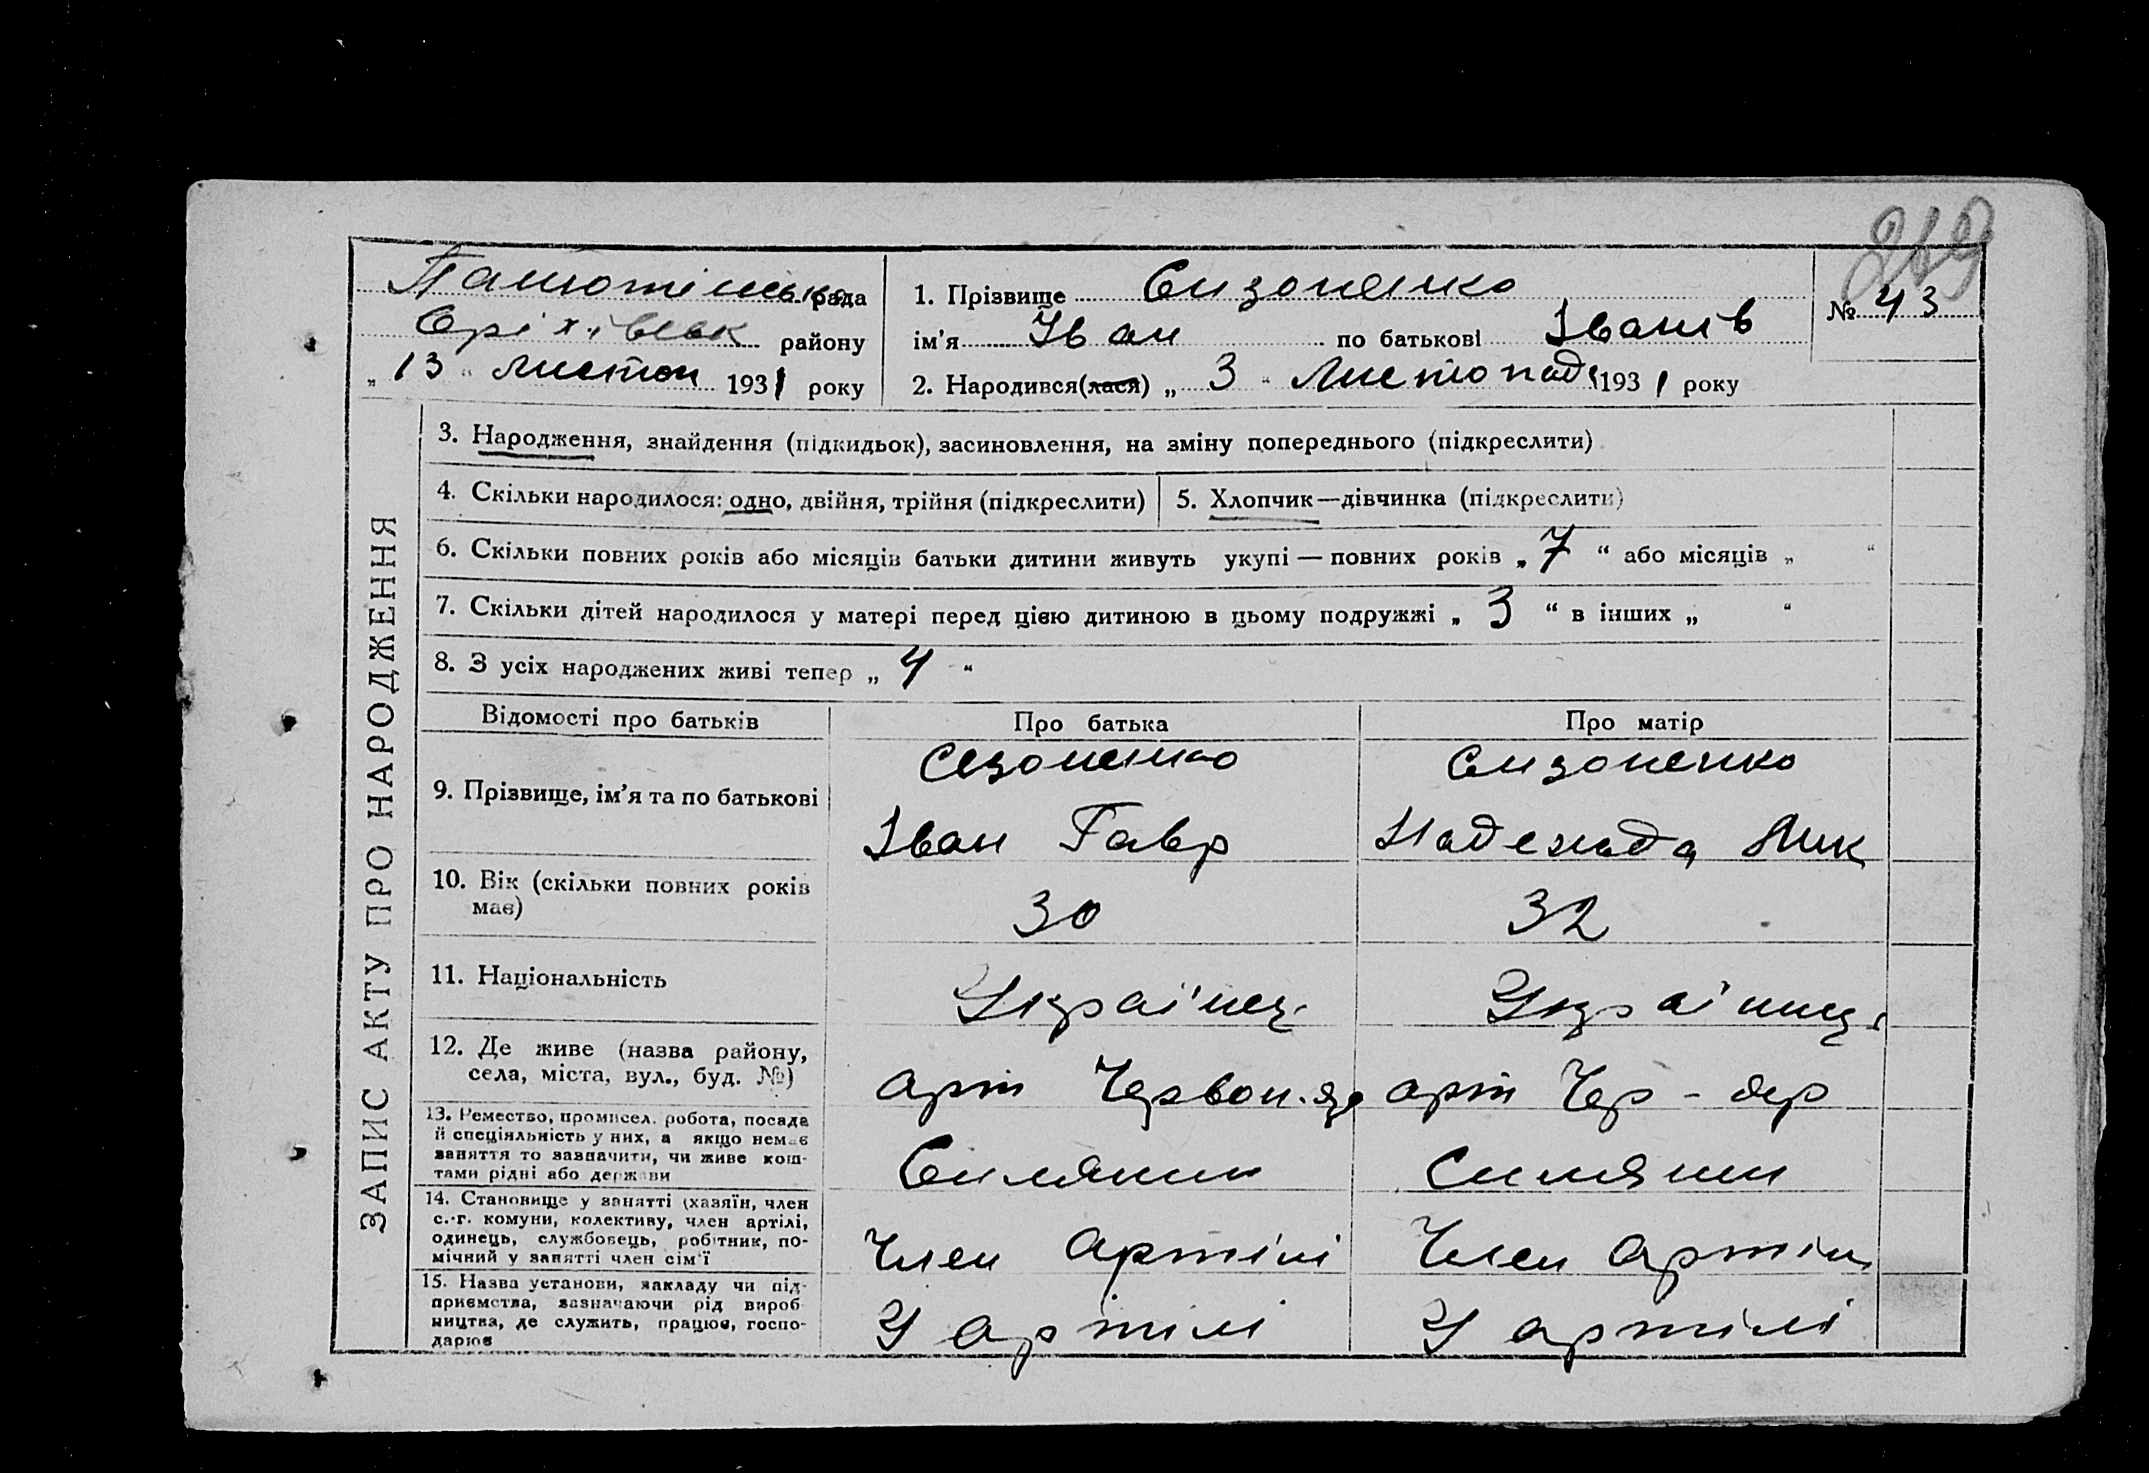 219
рада
району
„ 13 “ листоп 1931 року
1. Прізвище Сизоненко
ім’я Іван по батькові Іванів
№ 43
2. Народився(лася) „ 3 “ Листопада 1931 року
ЗАПИС АКТУ ПРО НАРОДЖЕННЯ
3. Народження, знайдення (підкидьок), засиновлення, на зміну попереднього (підкреслити)
4. Скільки народилося: одно, двійня, трійня (підкреслити)
5. Хлопчик—дівчинка (підкреслити)
6. Скільки повних років або місяців батьки дитини живуть укупі — повних років „ 7 “ або місяців „ “
7. Скільки дітей народилося у матері перед цією дитиною в цьому подружжі „ 3 “ в інших „ “
8. З усіх народжених живі тепер „ 4 “
Відомості про батьків
Про батька
Про матір
9. Прізвище, ім’я та по батькові
Сезоненко
Іван Гавр
Сизоненко
Надежда Мик
10. Вік (скільки повних років
має)
30
32
11. Національність
Українец
Україниця
12. Де живе (назва району,
села, міста, вул., буд. №)
арт Червон.
арт Чер -
13. Ремество, промисел. робота, посада
й спеціяльність у них, а якщо немає
заняття то зазначити, чи живе кош-
тами рідні або держави
Силянин
Силяни
14. Становище у занятті (хазяїн, член
с.-г. комуни, колективу, член артілі,
одинець, службовець, робітник, по-
мічний у занятті член сім’ї
Член Артілі
Член Артіли
15. Назва установи, закладу чи під-
приємства, зазначаючи рід вироб-
ництва, де служить, працює, госпо-
дарює
У артілі
У артілі